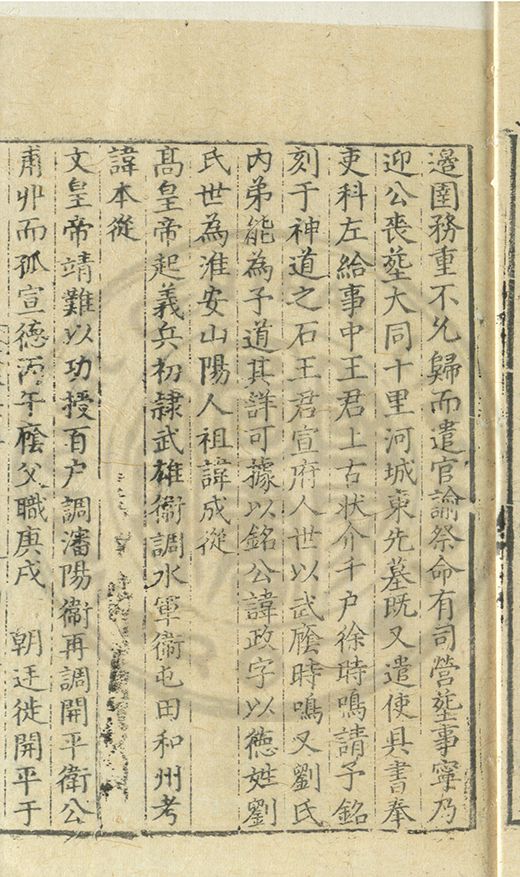 邉圉務重不允歸而遣官諭祭命有司營塟事寧乃
迎公喪塟大同十里河城東先墓既又遣使具書奉
吏科左給事中王君上古狀介千户徐時鳴請予銘
刻于神道之石王君宣府人世以武廕時鳴又劉氏
内弟能為予道其詳可據以銘公諱政字以徳姓劉
氏世為淮安山陽人祖諱成從
髙皇帝起義兵初隷武雄衞調水軍衞屯田和州考
諱本從
文皇帝靖難以功授百户調瀋陽衞再調開平衛公
甫丱而孤宣德丙午廕父職庚戌 朝廷徙開平于